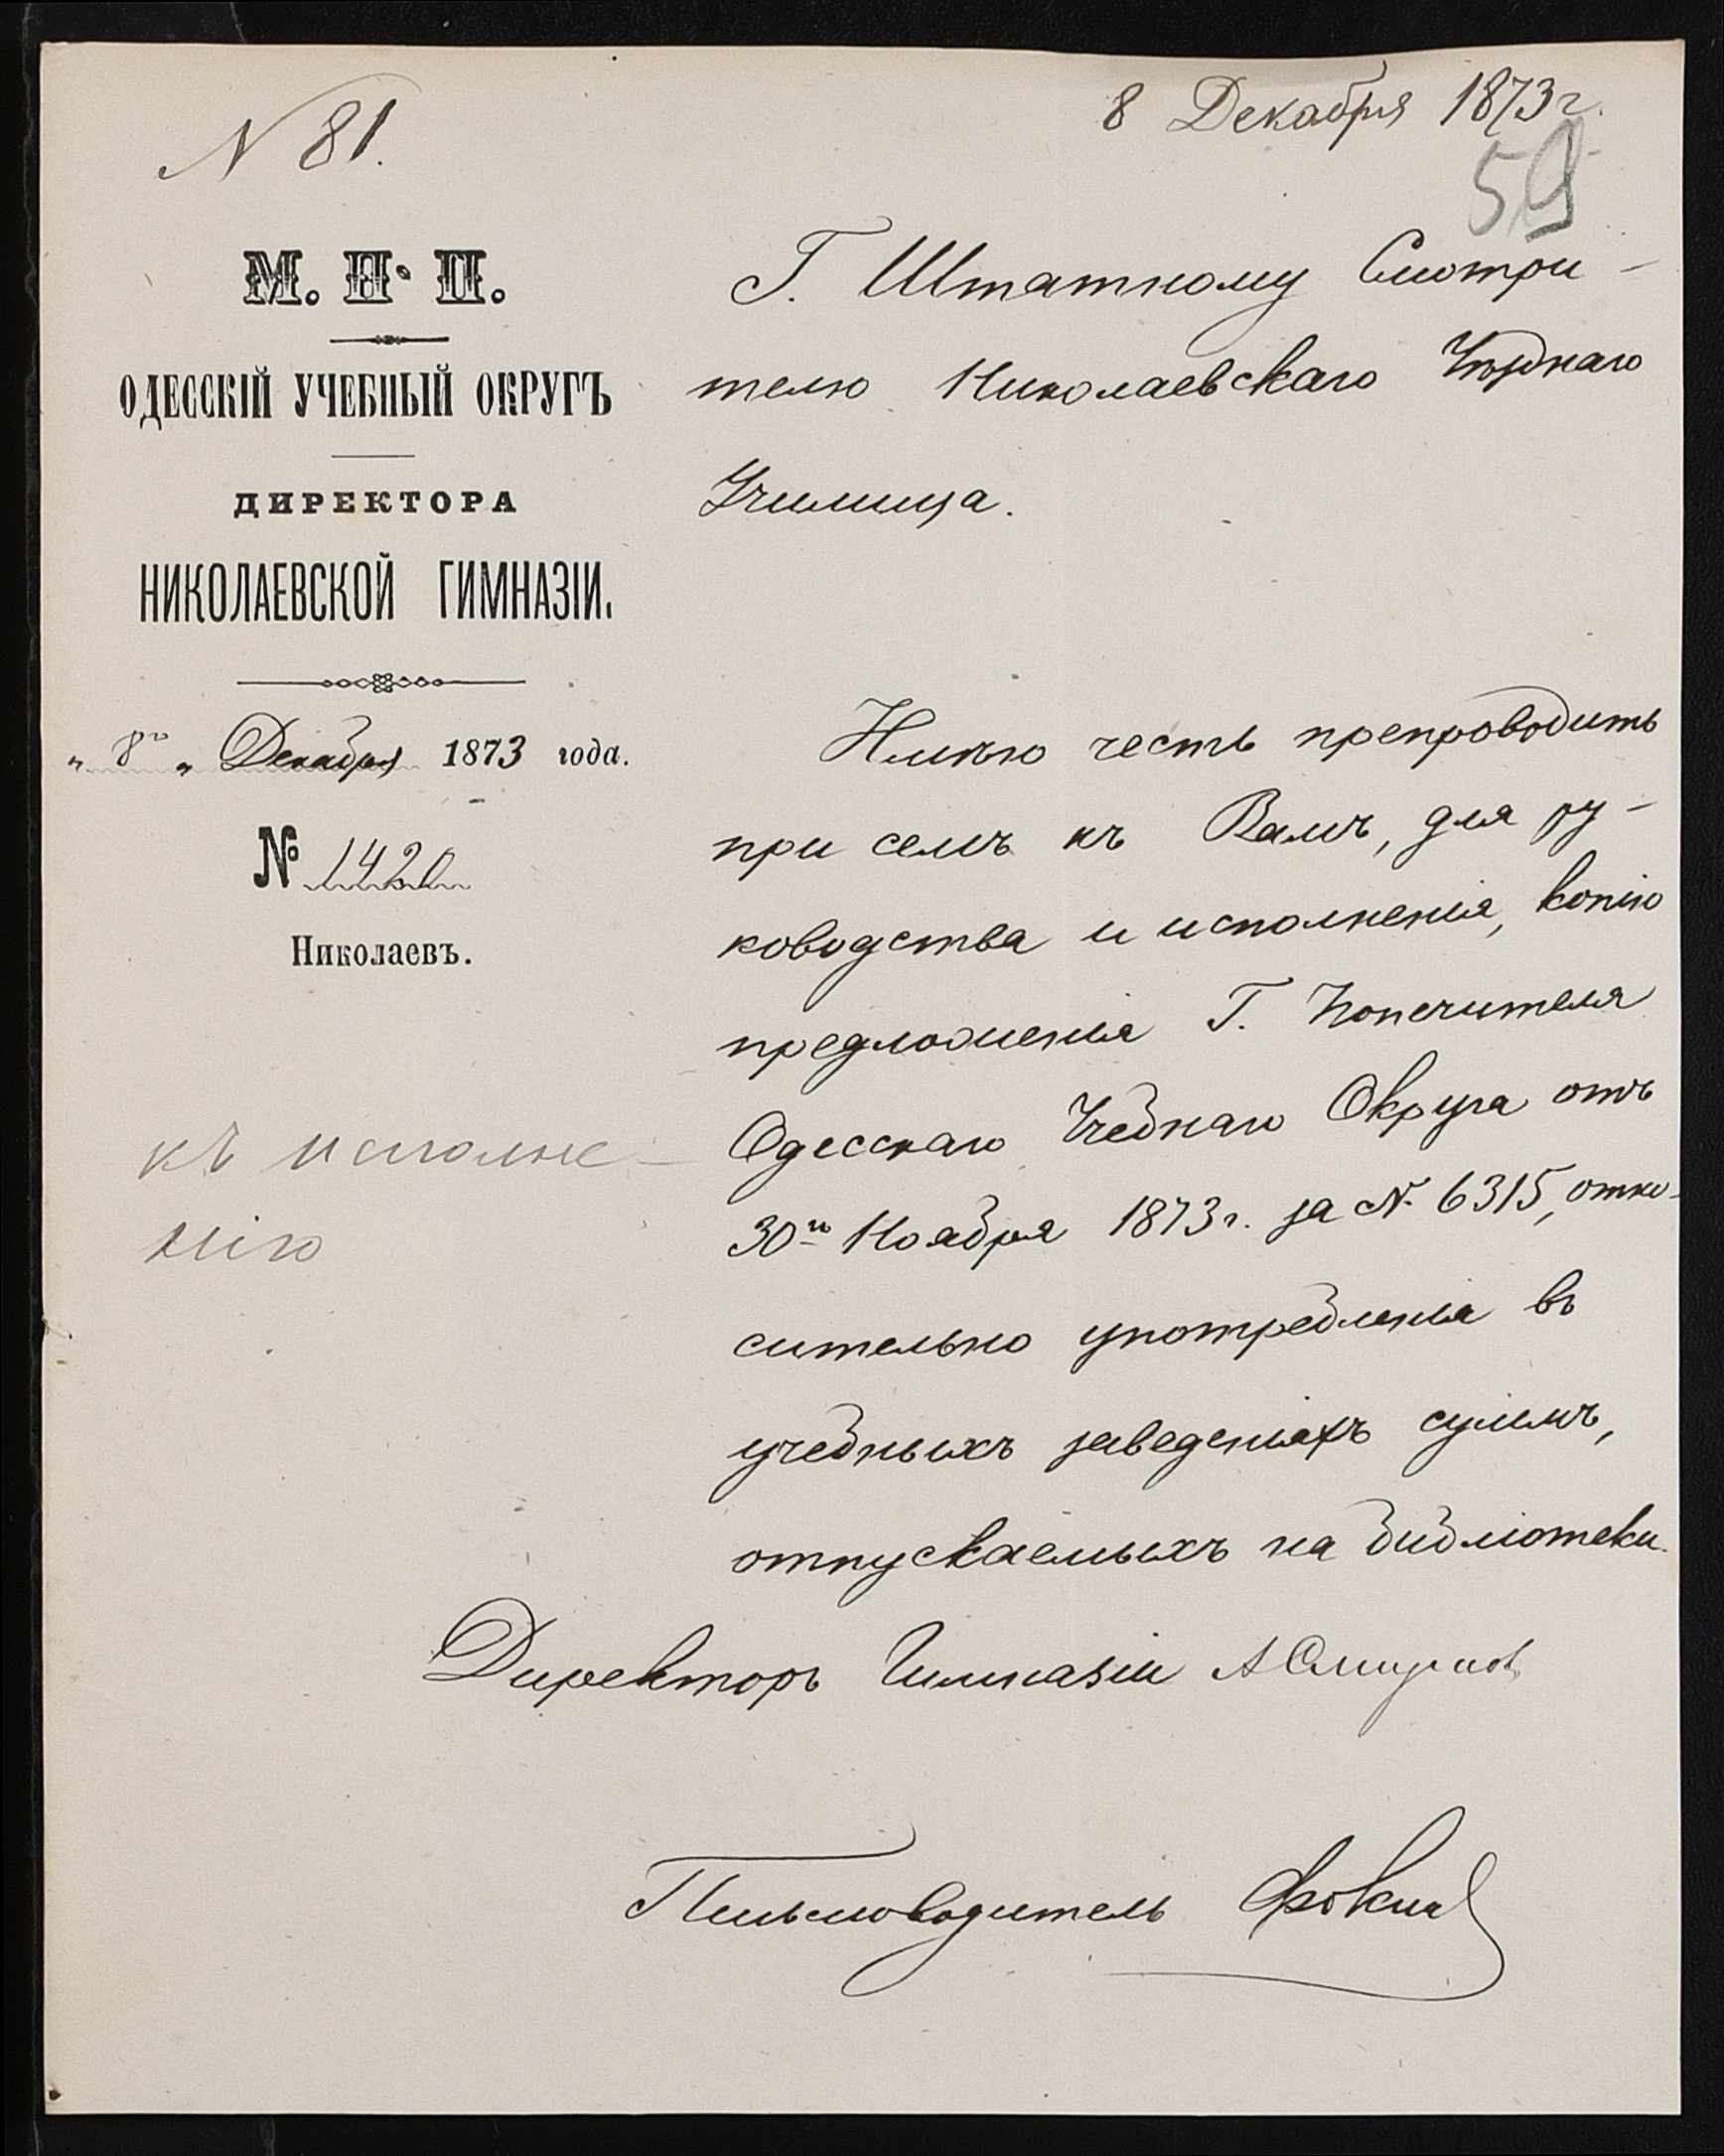 N 81.
8 Декабря 1873 г.
59
М. Н. П.
ОДЕССКІЙ УЧЕБНЫЙ ОКРУГЪ
ДИРЕКТОРА
НИКОЛАЕВСКОЙ ГИМНАЗІИ.
„ 8го „ Декабря 1873 года.
№ 1420
Николаевъ.
къ исполне-
нію
Г. Штатному Смотри-
телю Николаевскаго Уѣзднаго
Училища.
Имѣю честь препроводить
при семъ къ Вамъ, для ру-
ководства и исполненія, копію
предложенія Г. Попечителя
Одесскаго Учебнаго Округа отъ
30го Ноября 1873 г. за N. 6315, отно-
сительно употребленія въ
учебныхъ заведеніяхъ суммъ,
отпускаемыхъ на библіотеки.
Директоръ Гимназіи А Смирнов
Письмоводитель Фокин